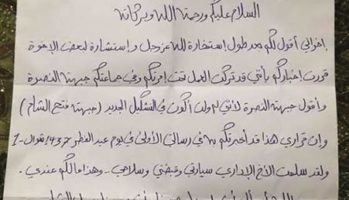 السلام عليكم ورحمة الله وبركاته
إخواني أقول لكم بعد طول إستخارة الله عز وجل و إستشارة لبعض الإخوة
قررت إخباركم بأني قد تركت العمل تحت إمرتكم وفي جماعتكم جبهة النصرة
وأقول جبهة النصرة لأنني لم ولن أكون في التشكيل الجديد (جبهة فتح الشام)
وإن قراري هذا قد أخبرتكم به في رسالتي الأولى في يوم عيد الفطر 1437 شوال -1
ولقد سلمت الأخ الإداري سيارتي وقبضتي وسلاحي - وهذا ما لكم عندي.